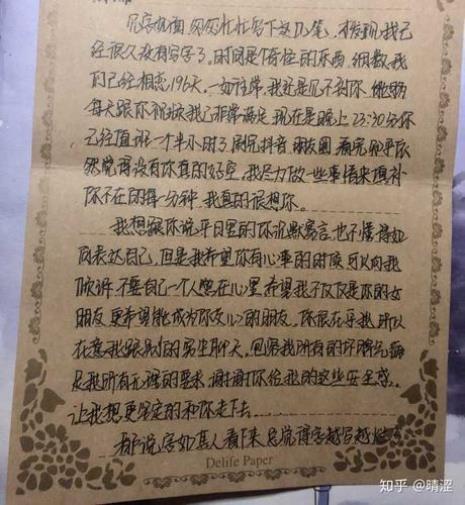 见字如面 匆匆忙忙写下这几笔,才发现我已
经很久没有写字了,时间是个奇怪的东西,细数,我
们已经相恋196天,一如往常,我还是见不到你,能够
每天跟你视频我已非常满足,现在是晚上23:20分你
已经值班一个半小时了,刷完抖音,朋友圈,看完似乎依
然觉得没有你真的好空,我尽力做一些事情来填补
你不在的每一分钟,我真的很想你。
我想跟你说平日里的你沉默寡言,也不懂得如
何表达自己,但是我希望你有心事的时候可以向我
倾诉,不要自己一个人憋在心里,希望我不仅仅是你的女
朋友更希望能成为你交心的朋友,你很在乎我,所以
在意我跟别的男生聊天,包容我所有的坏脾气,满
足我所有无理的要求,谢谢你给我的这些安全感,
让我想更坚定的和你走下去......
都说字如其人,看下来,总觉得字越写越烂了
Delife Paper
知乎 @晴涩